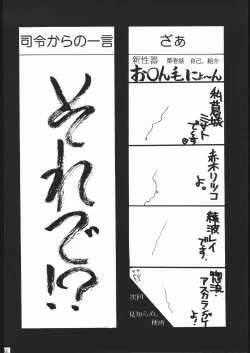 ざぁ
新性器 第壱話 自己、紹介
お〇ん毛にょ〜ん
私葛城
ミサト
です
赤木リツコ
よ。
綾波レイ
です。
惣流・
アスカラングレー
よ!
次回
見知らぬ、
便所
司令からの一言
それで!?